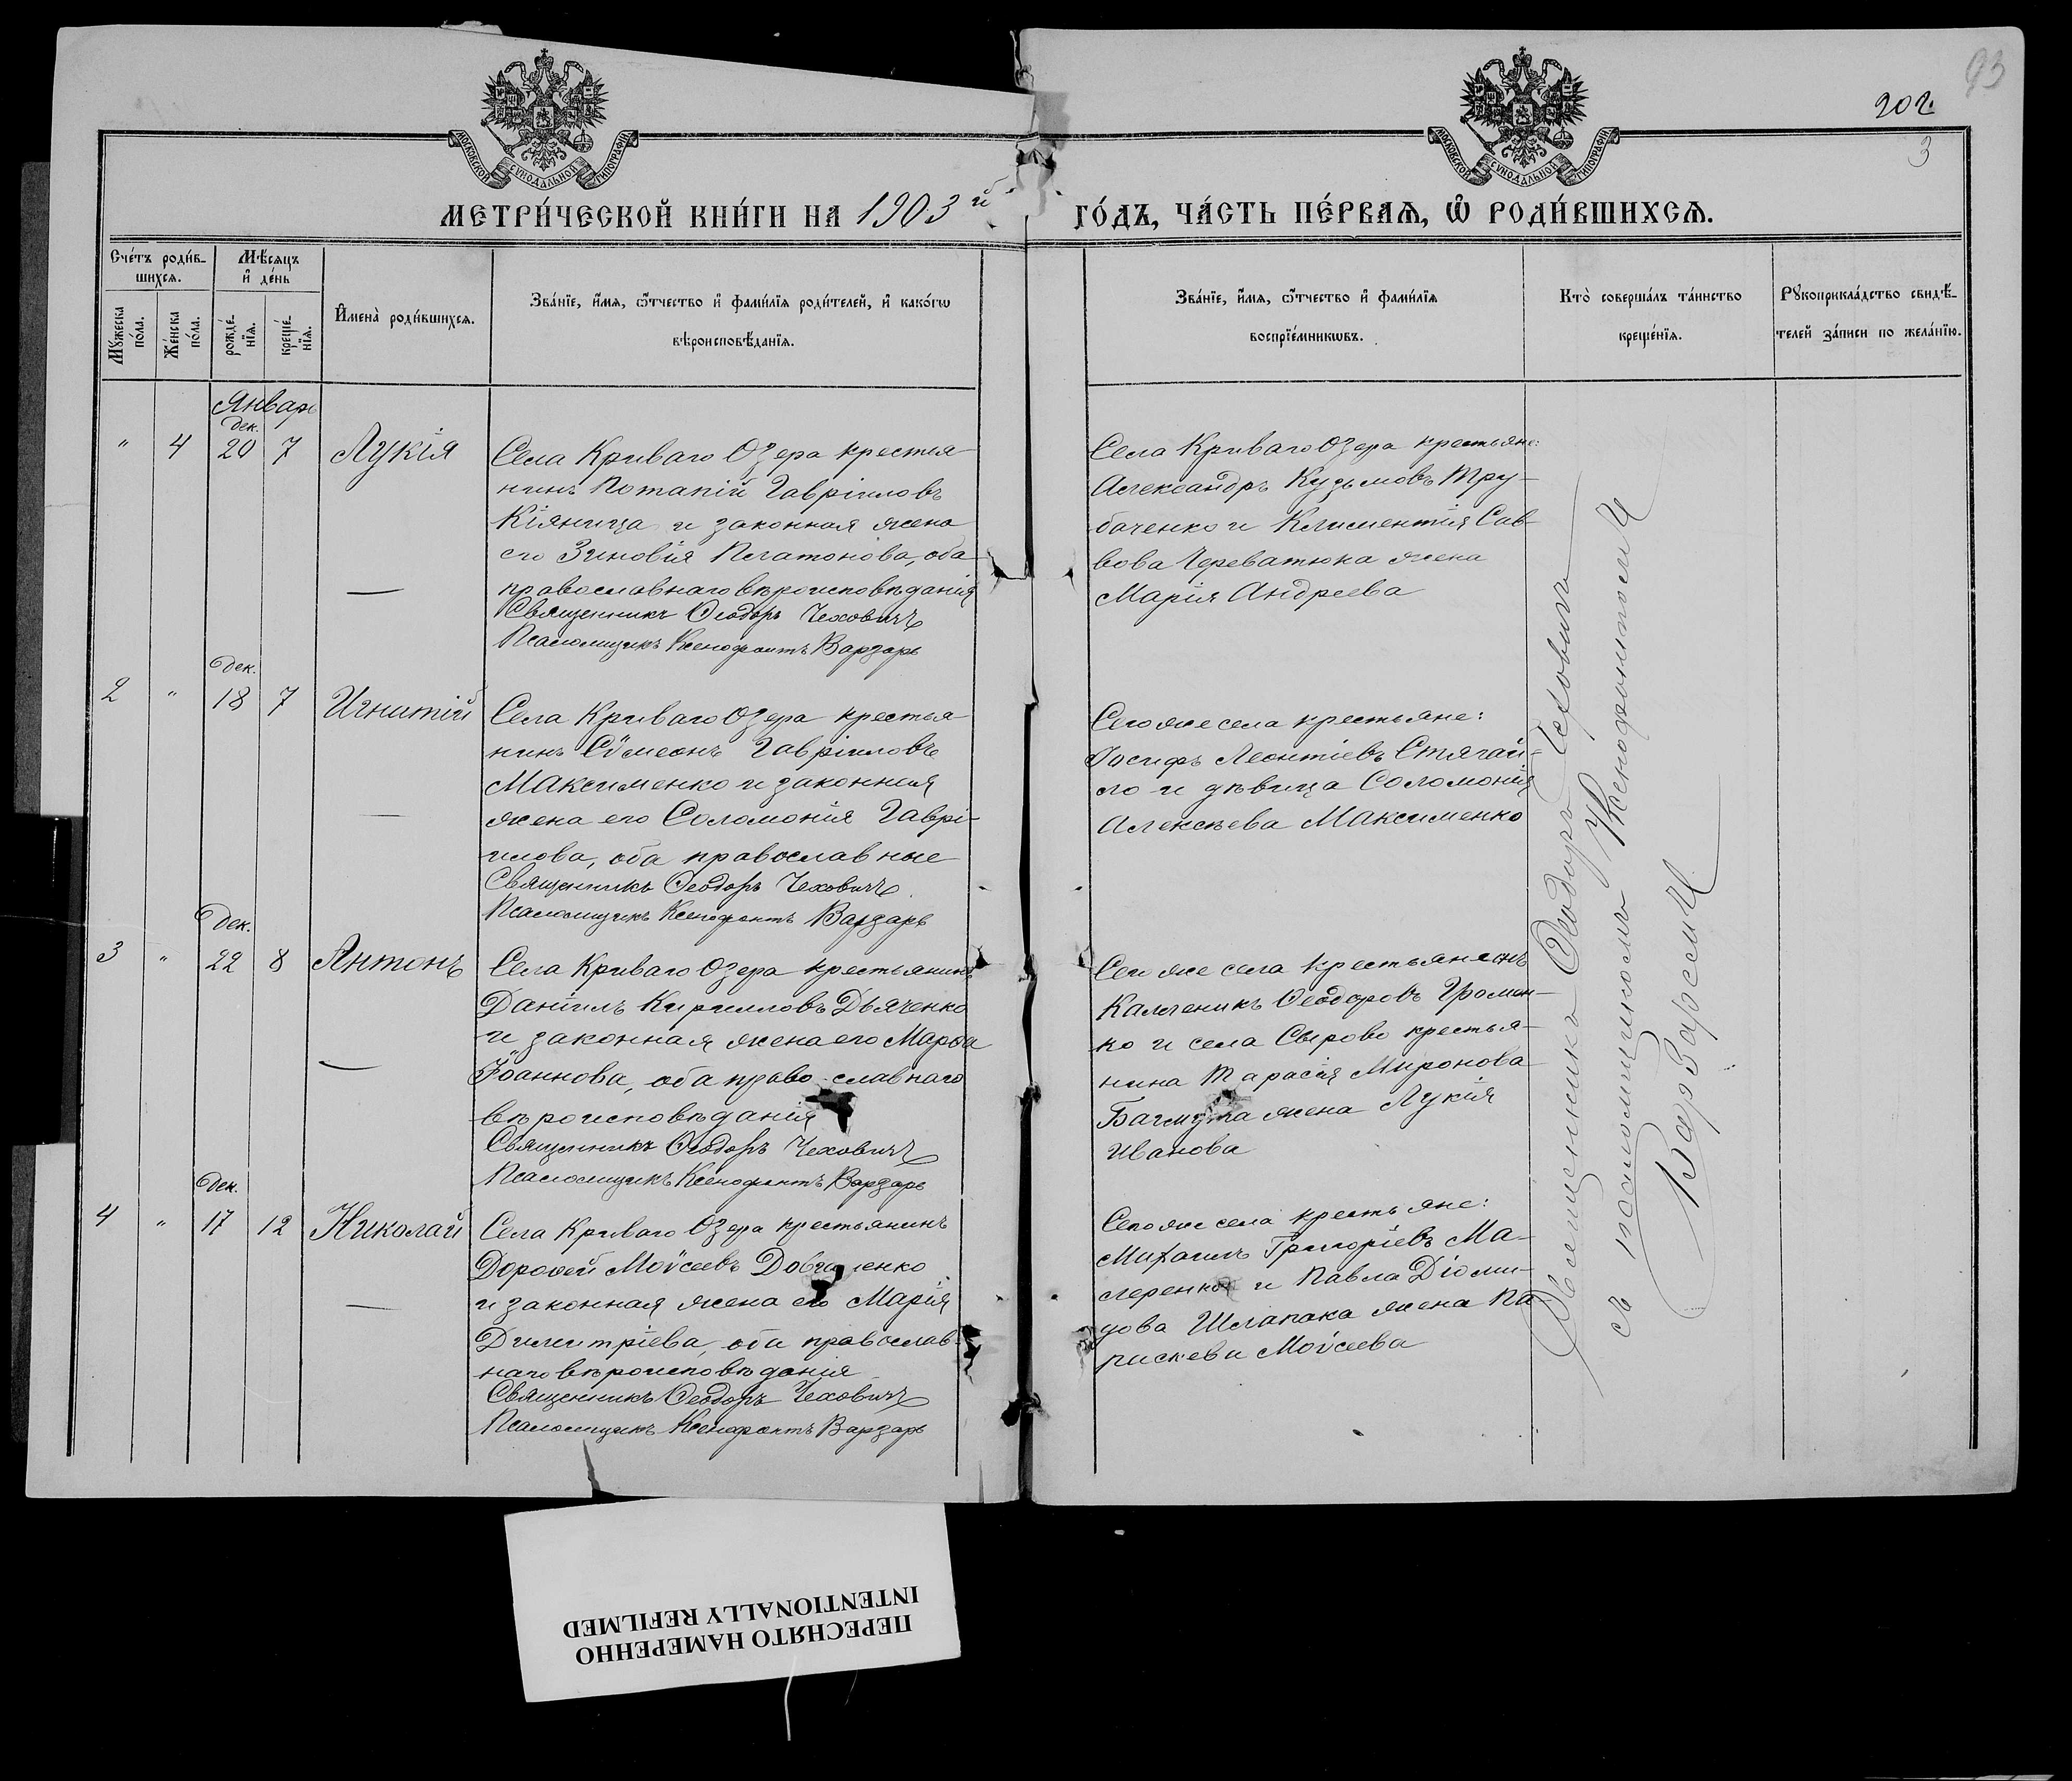 93
202.
3
МОСКОВСКОЙ СѴНОДАЛЬНОЙ ТИПОГРАФІИ
МОСКОВСКОЙ СѴНОДАЛЬНОЙ ТИПОГРАФІИ
МЕТРИ́ЧЕСКОЙ КНИ́ГИ НА 1903й
ГО́ДЪ, ЧА́СТЬ ПЕ́РВАѦ, Ѡ҆ РОДИ́ВШИХСѦ.
Сче́тъ роди́в-
шихсѧ.
Мѣ́сѧцъ
и҆ де́нь
Мꙋ́жеска
по́ла.
Же́нска
по́ла.
рожде́-
нїѧ.
креще́-
нїѧ.
И҆мена̀ роди́вшихсѧ.
Зва́нїе, и҆́мѧ, ѻ҆́тчество и҆ фами́лїѧ роди́телей, и҆ како́гѡ
вѣроисповѣ́данїѧ.
Зва́нїе, и҆́мѧ, ѻ҆́тчество и҆ фами́лїѧ
воспрїе́мникѡвъ.
Кто̀ соверша́лъ та́инство
креще́нїѧ.
Рꙋкоприкла́дство свидѣ́-
телей за́писи по жела́нїю.
Январь
дек.
" 4 20 7 Лукія
Села Криваго Озера крестья-
нинъ Потапій Гавріиловъ
Кіяница и законная жена
его Зиновія Платонова, оба
православнаго вѣроисповѣданія
Священникъ Ѳеодоръ Чеховичъ
Псаломщикъ Ксенофонтъ Варзарь
Села Криваго Озера крестьяне:
Александръ Кузьмовъ Тру-
баченко и Климентія Сав-
вова Череватюка жена
Марія Андреева
дек.
2 " 18 7 Игнатій
Села Криваго Озера крестья-
нинъ Сѵмеонъ Гавріиловъ
Максименко и законная
жена его Соломонія Гаврі-
илова, оба православные
Священникъ Ѳеодоръ Чеховичъ
Псаломщикъ Ксенофонтъ Варзарь
Сего же села крестьяне:
Іосифъ Леонтіевъ Стягай-
ло и дѣвица Соломонія
Алексѣева Максименко
Дек.
3 " 22 8 Антонъ
Села Криваго Озера крестьянинъ
Даніилъ Кирилловъ Дьяченко
и законная жена его Марѳа
Іоаннова, оба православнаго
вѣроисповѣданія
Священникъ Ѳеодоръ Чеховичъ
Псаломщикъ Ксенофонтъ Варзарь
Сего же села крестьянинъ
Каленикъ Ѳеодоровъ Громен-
ко и села Сырово крестья-
нина Тарасія Миронова
Багмута жена Лукія
Иванова
Дек.
4 " 17 12 Николай
Села Криваго Озера крестьянинъ
Дороѳей Моѵсеевъ
и законная жена его Марія
Димитріева, оба православ-
наго вѣроисповѣданія
Священникъ Ѳеодоръ Чеховичъ
Псаломщикъ Ксенофонтъ Варзарь
Сего же села крестьяне:
Михаилъ Григоріевъ Ма-
леренко и Павла Діоми-
дова Шлапака жена Па-
раскева Моѵсеева
Священникъ Ѳеодоръ Чеховичъ
съ псаломщикомъ Ксенофонтомъ
Варзаремъ
ПЕРЕСНЯТО НАМЕРЕННО
INTENTIONALLY REFILMED